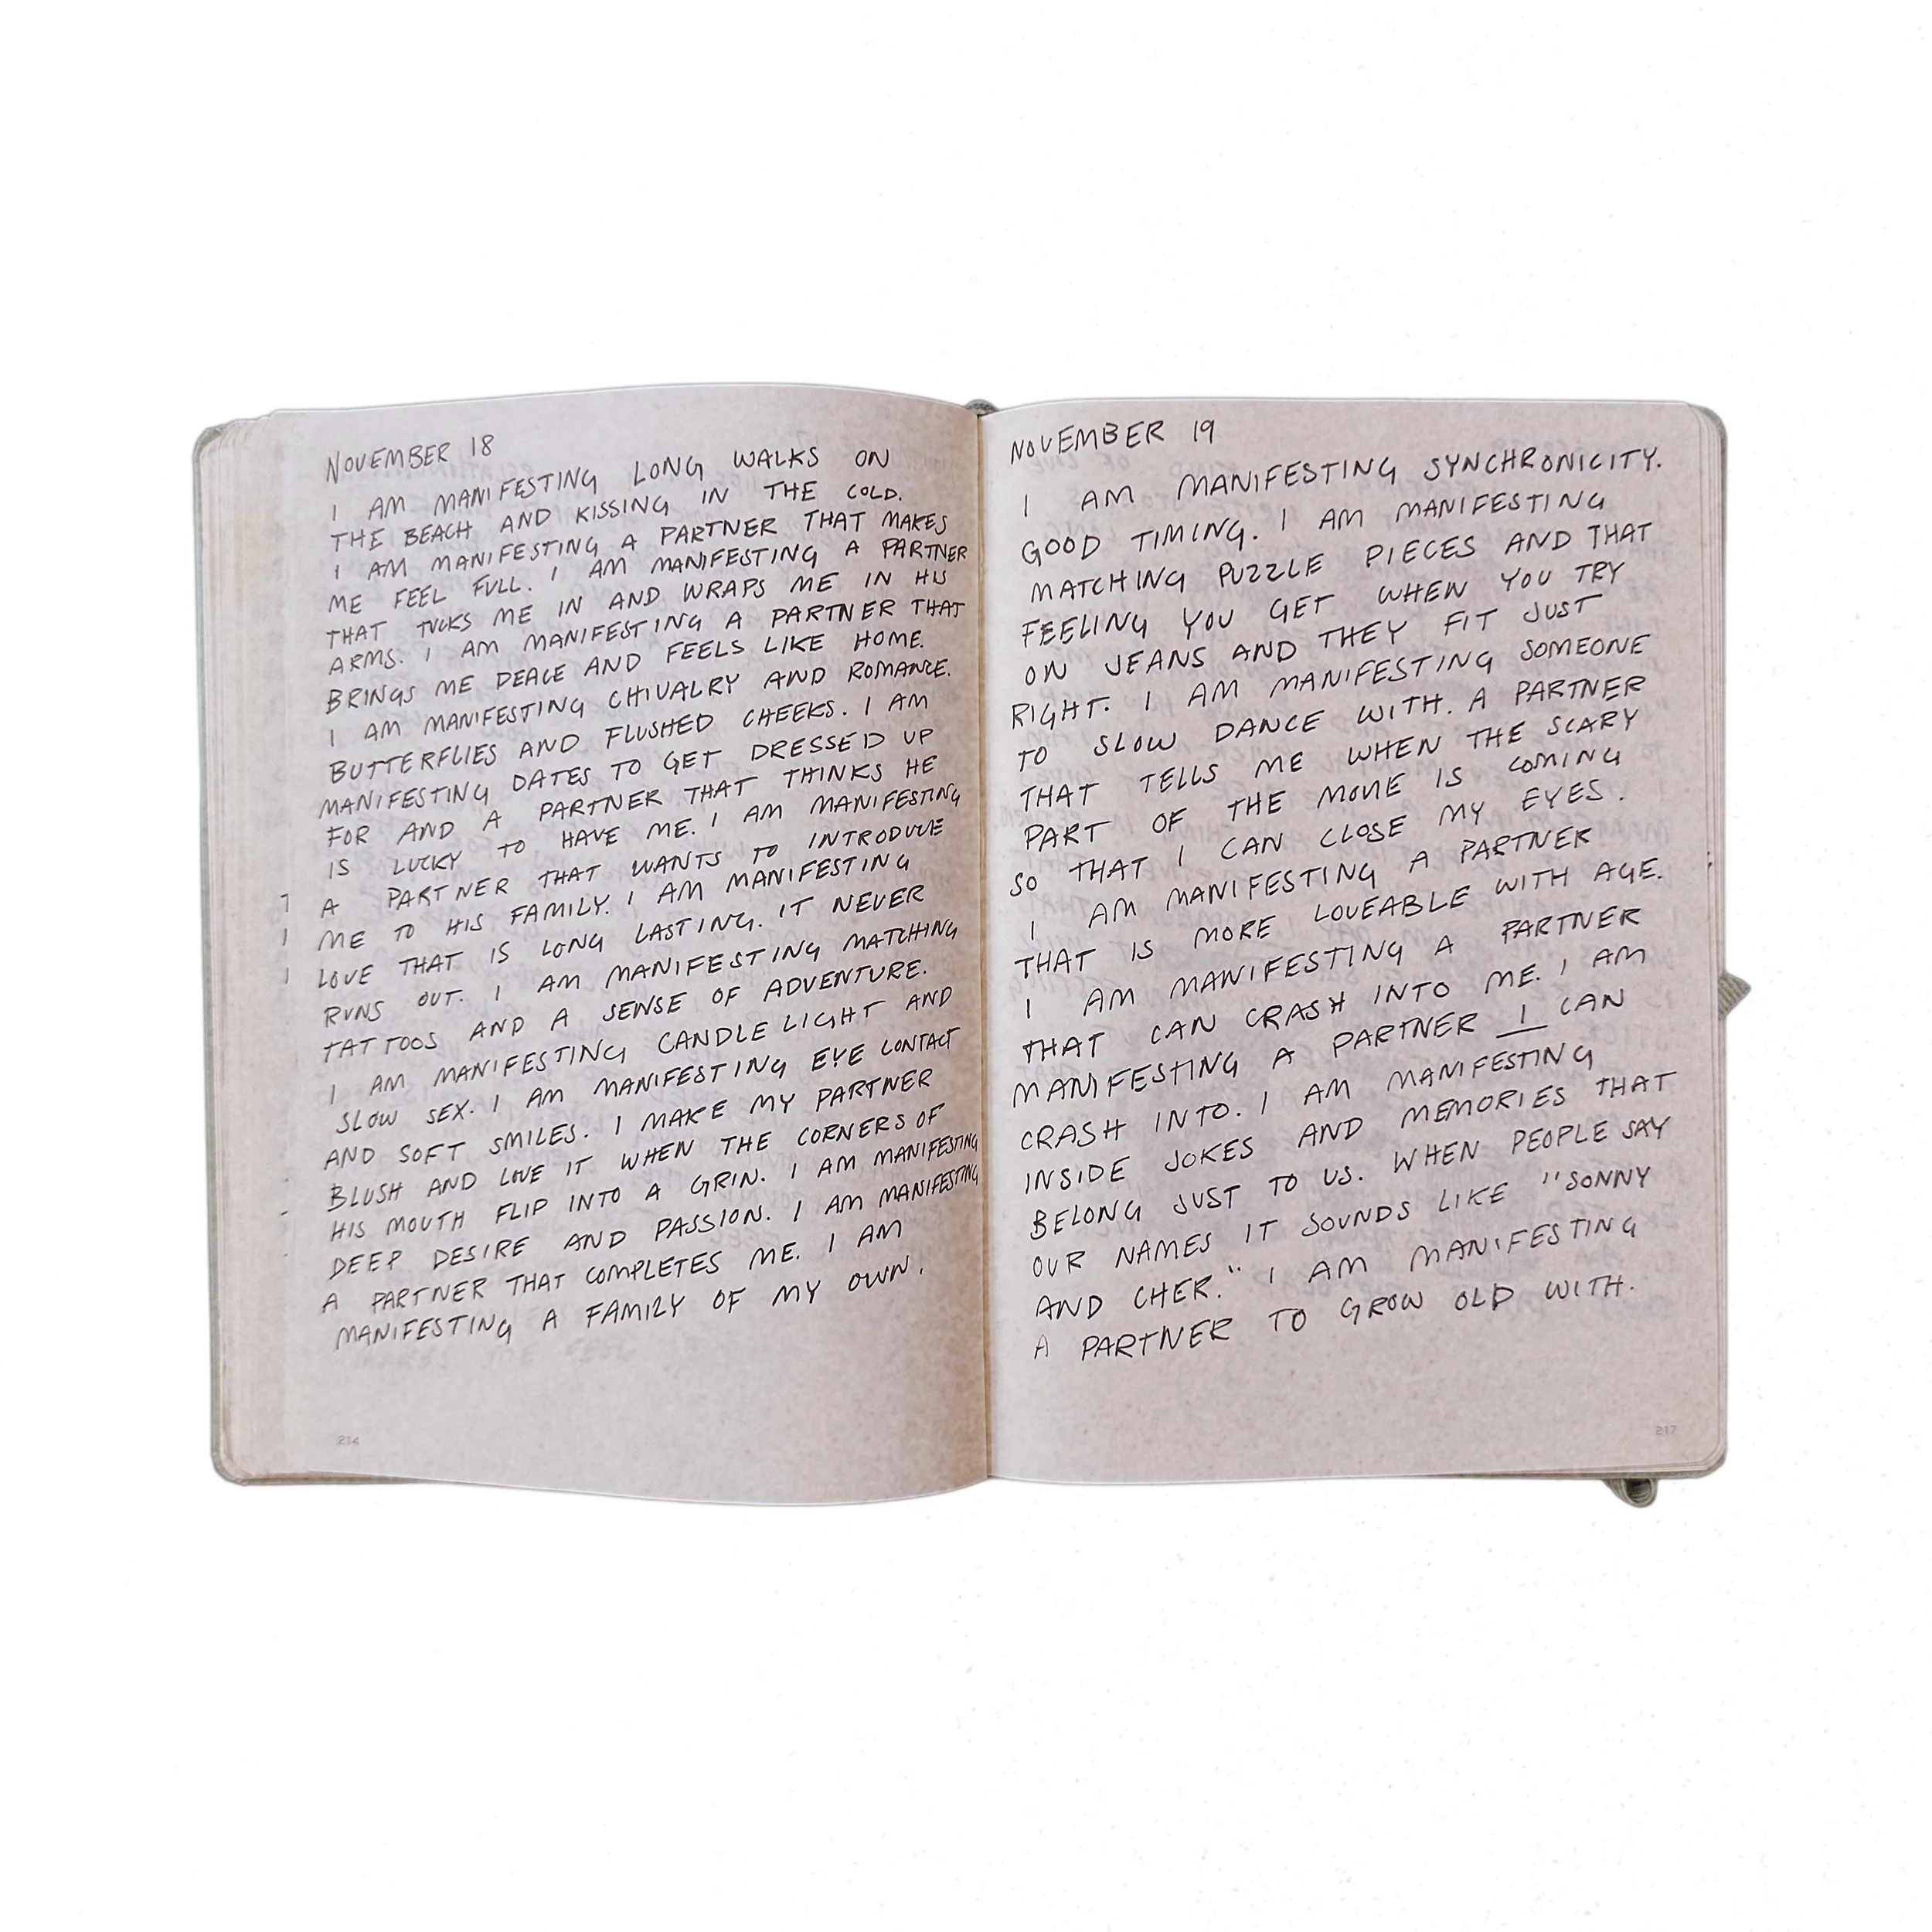 NOVEMBER 18
I AM MANIFESTING LONG WALKS ON
THE BEACH AND KISSING IN THE COLD.
I AM MANIFESTING A PARTNER THAT MAKES
ME FEEL FULL. I AM MANIFESTING A PARTNER
THAT TUCKS ME IN AND WRAPS ME IN HIS
ARMS. I AM MANIFESTING A PARTNER THAT
BRINGS ME PEACE AND FEELS LIKE HOME.
I AM MANIFESTING CHIVALRY AND ROMANCE.
BUTTERFLIES AND FLUSHED CHEEKS. I AM
MANIFESTING DATES TO GET DRESSED UP
FOR AND A PARTNER THAT THINKS HE
IS LUCKY TO HAVE ME. I AM MANIFESTING
A PARTNER THAT WANTS TO INTRODUCE
ME TO HIS FAMILY. I AM MANIFESTING
LOVE THAT IS LONG LASTING. IT NEVER
RUNS OUT. I AM MANIFESTING MATCHING
TATTOOS AND A SENSE OF ADVENTURE.
I AM MANIFESTING CANDLELIGHT AND
SLOW SEX. I AM MANIFESTING EYE CONTACT
AND SOFT SMILES. I MAKE MY PARTNER
BLUSH AND LOVE IT WHEN THE CORNERS OF
HIS MOUTH FLIP INTO A GRIN. I AM MANIFESTING
DEEP DESIRE AND PASSION. I AM MANIFESTING
A PARTNER THAT COMPLETES ME. I AM
MANIFESTING A FAMILY OF MY OWN.
214
NOVEMBER 19
I AM MANIFESTING SYNCHRONICITY.
GOOD TIMING. I AM MANIFESTING
MATCHING PUZZLE PIECES AND THAT
FEELING YOU GET WHEN YOU TRY
ON JEANS AND THEY FIT JUST
RIGHT. I AM MANIFESTING SOMEONE
TO SLOW DANCE WITH. A PARTNER
THAT TELLS ME WHEN THE SCARY
PART OF THE MOVIE IS COMING
SO THAT I CAN CLOSE MY EYES.
I AM MANIFESTING A PARTNER
THAT IS MORE LOVEABLE WITH AGE.
I AM MANIFESTING A PARTNER
THAT CAN CRASH INTO ME. I AM
MANIFESTING A PARTNER I CAN
CRASH INTO. I AM MANIFESTING
INSIDE JOKES AND MEMORIES THAT
BELONG JUST TO US. WHEN PEOPLE SAY
OUR NAMES IT SOUNDS LIKE "SONNY
AND CHER." I AM MANIFESTING
A PARTNER TO GROW OLD WITH.
217